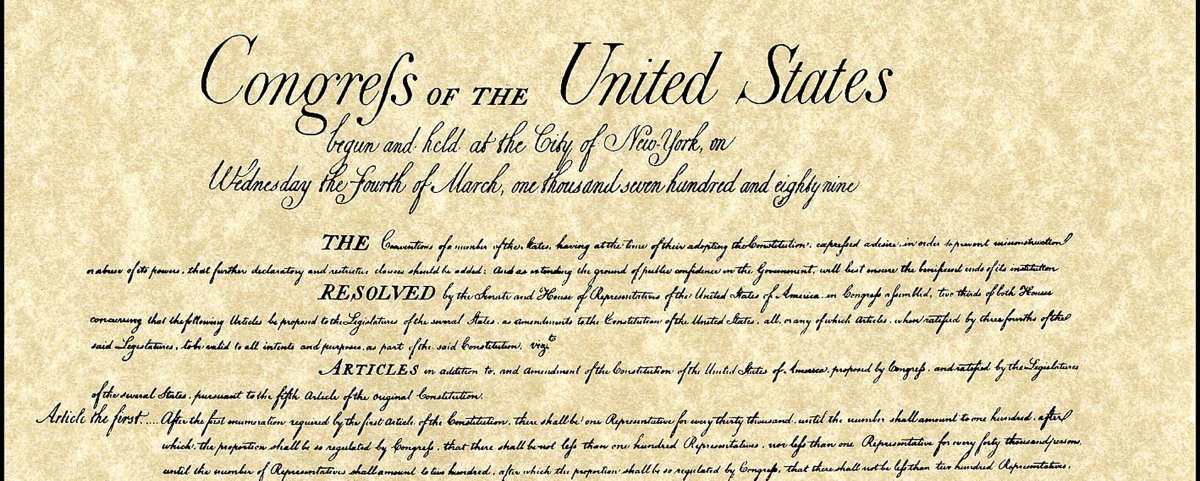 Congreſs OF THE United States
begun and held at the City of New-York, on
Wednesday the Fourth of March, one thousand seven hundred and eighty nine
THE Conventions of a number of the States, having at the time of their adopting the Constitution, expreſsed a desire, in order to prevent misconstruction
or abuse of its powers, that further declaratory and restrictive clauses should be added: And as extending the ground of public confidence in the Government, will best ensure the beneficent ends of its institution
RESOLVED by the Senate and House of Representatives of the United States of America, in Congreſs aſsembled, two thirds of both Houses
concurring that the following Articles be proposed to the Legislatures of the several States, as amendments to the Constitution of the United States, all, or any of which Articles, when ratified by three fourths of the
said Legislatures, to be valid to all intents and purposes, as part of the said Constitution, vizt
ARTICLES in addition to, and amendment of the Constitution of the United States of America, proposed by Congreſs, and ratified by the Legislatures
of the several States, pursuant to the fifth Article of the original Constitution.
Article the first..... After the first enumeration required by the first Article of the Constitution, there shall be one Representative for every thirty thousand, until the number shall amount to one hundred, after
which, the proportion shall be so regulated by Congreſs, that there shall be not leſs than one hundred Representatives, nor leſs than one Representative for every forty thousand persons,
until the number of Representatives shall amount to two hundred, after which the proportion shall be so regulated by Congreſs, that there shall not be leſs than two hundred Representatives,